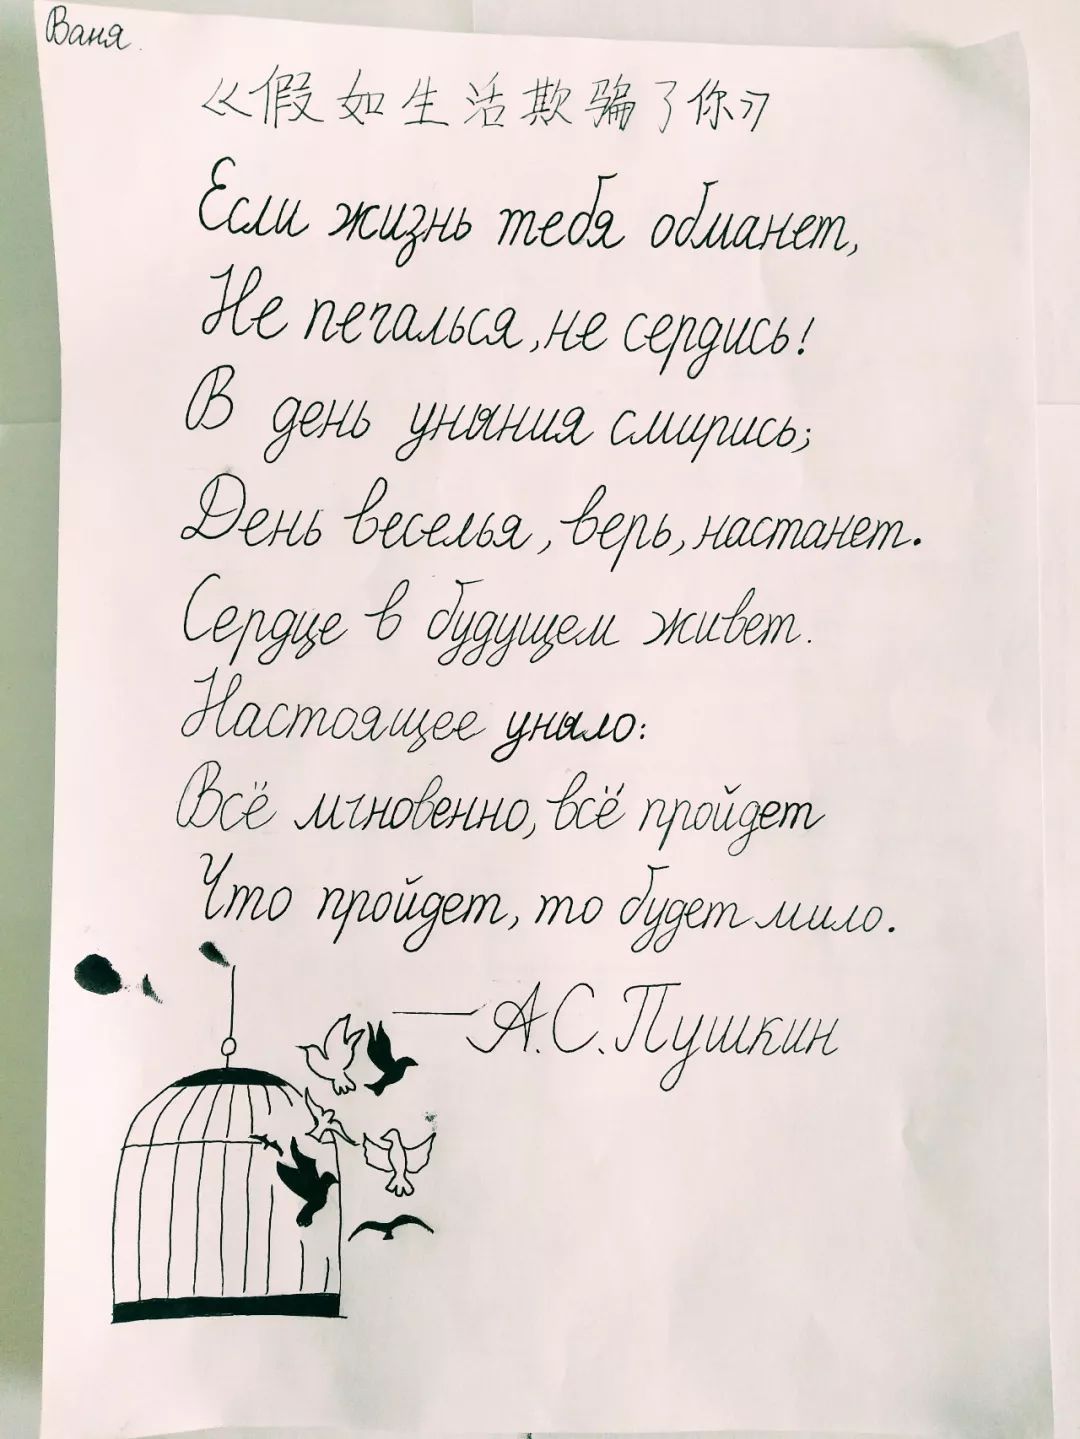 Ваня
《假如生活欺骗了你》
Если жизнь тебя обманет,
Не печалься, не сердись!
В день уныния смирись;
День веселья, верь, настанет.
Сердце в будущем живет.
Настоящее уныло:
Всё мгновенно, всё пройдет
Что пройдет, то будет мило.
— А.С. Пушкин